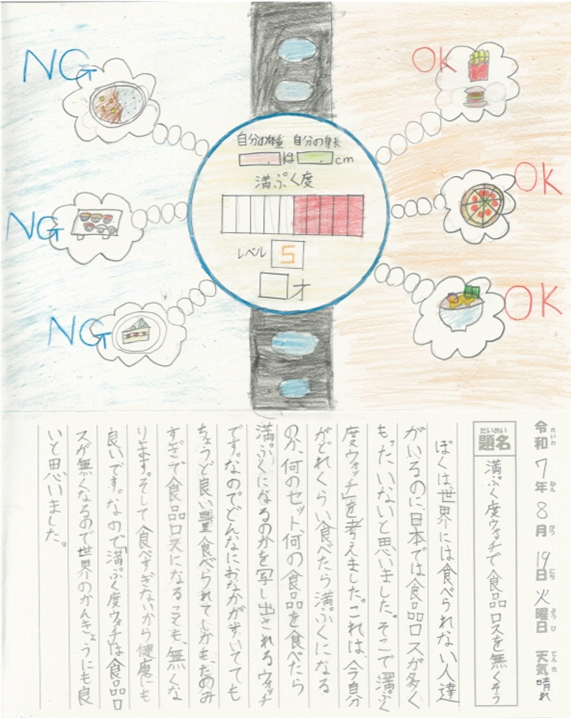 NG
OK
自分の体重 自分の身長
. kg . cm
満ぷく度
NG
OK
レベル 5
才
NG
OK
令和7年8月19日火曜日 天気晴れ
だいめい
題名
満ぷく度ウォッチで食品ロスを無くそう
ぼくは、世界には食べられない人達
がいるのに、日本では食品ロスが多く
もったいないと思いました。そこで「満ぷく
度ウォッチ」を考えました。これは、今自分
がどれくらい食べたら満ぷくになる
のか、何のセット、何の食品を食べたら
満ぷくになるのかを写し出されるウォッチ
です。なのでどんなにおなかがすいてても
ちょうど良い量食べられてしかも、たのみ
すぎで食品ロスになることも、無くな
ります。そして食べすぎないから健康にも
良いです。なので「満ぷく度ウォッチ」は食品ロ
スが無くなるので世界のかんきょうにも良
いと思いました。